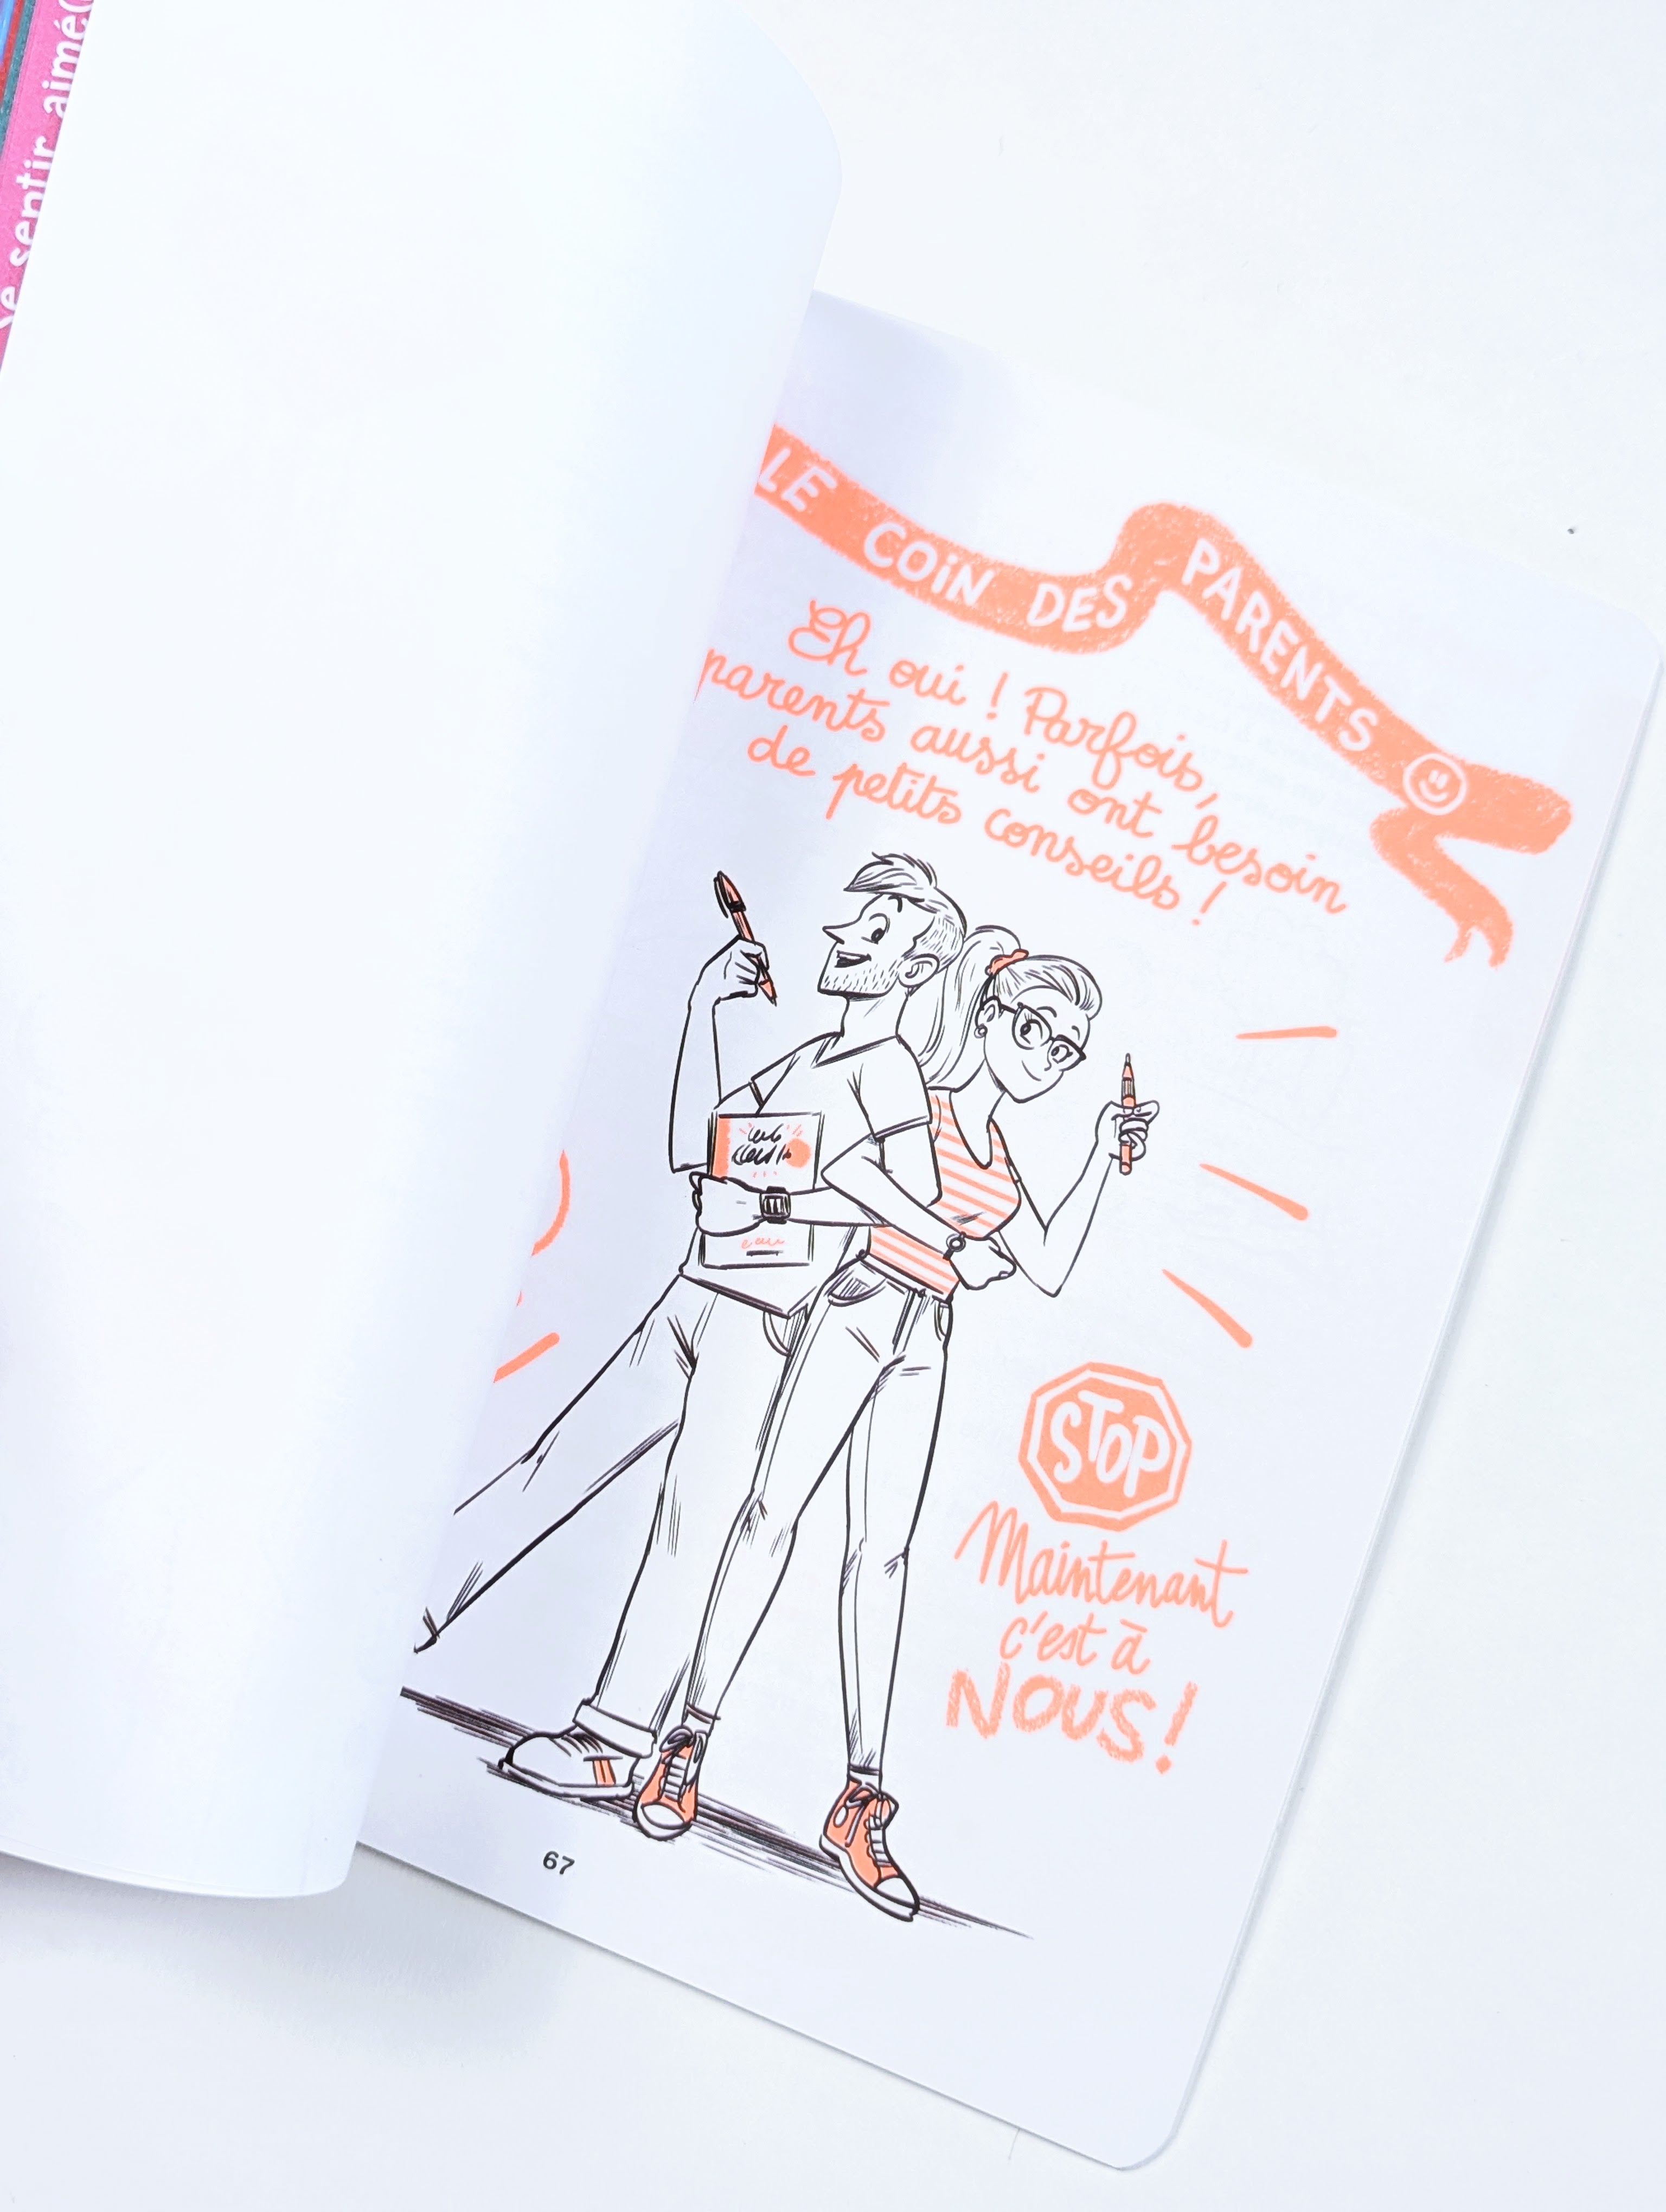 se sentir aimé(
LE COIN DES PARENTS
Eh oui ! Parfois,
parents aussi ont besoin
de petits conseils !
STOP
Maintenant
c'est à
NOUS !
67